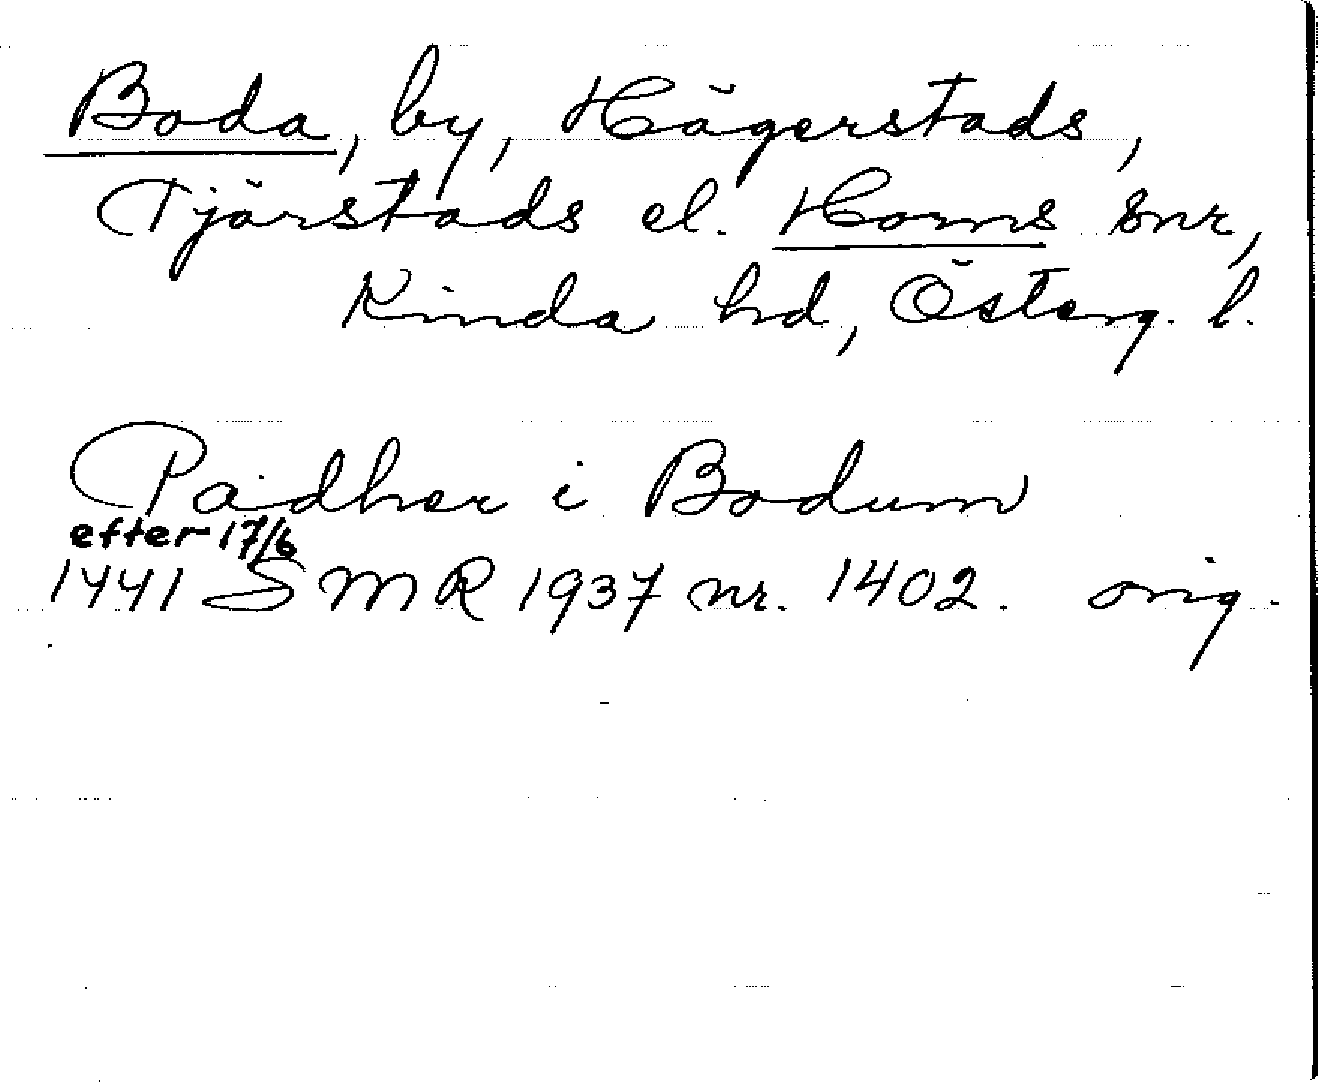 Boda, by, Hägerstads,
Tjärstads el. Horns snr,
Kinda hd, Österg. l.
Pädher i Bodum
efter 17/6
1441 SMR 1937 nr. 1402. orig.